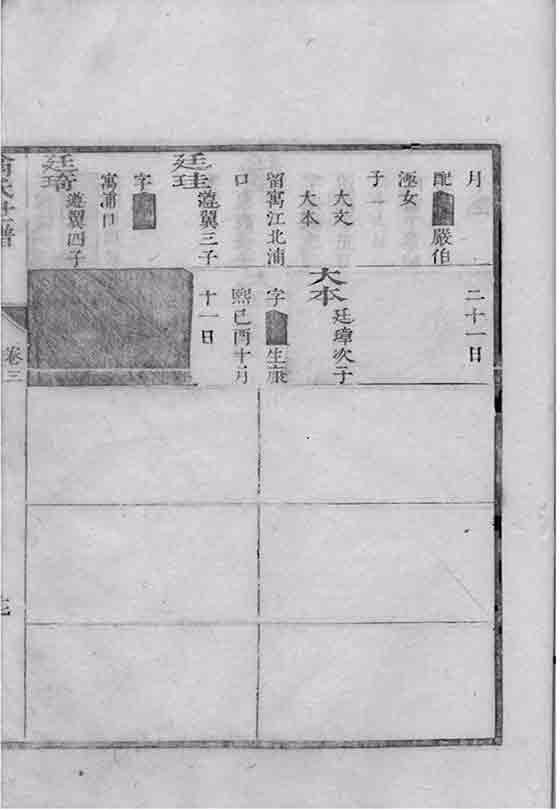 月
配 嚴伯
涵女
子一
大文
大本
留寓江北浦
口
廷珪 瀅翼三子
字
寓浦口
廷琦 瀅翼四子
二十一日
大本 廷瑋次子
字 生康
熙己酉十月
十一日
氏世譜
卷三